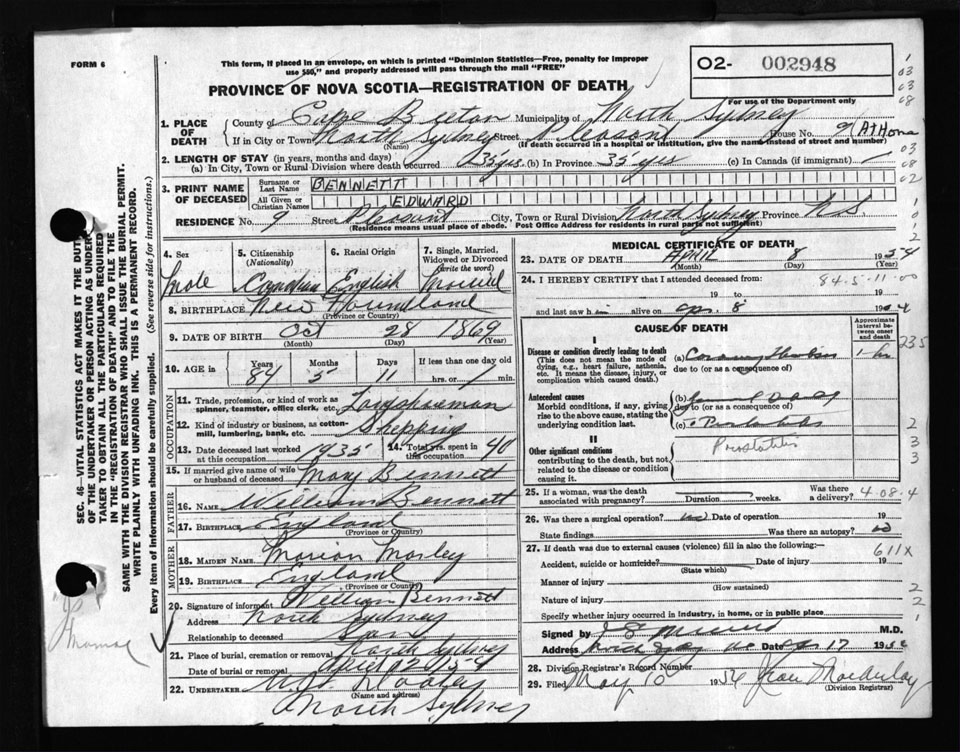 FORM 6
This form, if placed in an envelope, on which is printed "Dominion Statistics—Free, penalty for improper
use $50," and properly addressed will pass through the mail "FREE"
O2- 002948
For use of the Department only
PROVINCE OF NOVA SCOTIA—REGISTRATION OF DEATH
1. PLACE OF DEATH
County of Cape Breton Municipality of North Sydney
If in City or Town North Sydney Street Pleasant House No. 9 (At Home
(Name) (If death occurred in a hospital or institution, give the name instead of street and number)
2. LENGTH OF STAY (in years, months and days)
(a) In City, Town or Rural Division where death occurred 35 yrs. (b) In Province 35 yrs (c) In Canada (if immigrant)
3. PRINT NAME OF DECEASED
Surname or Last Name BENNETT
All Given or Christian Names EDWARD
RESIDENCE No. 9 Street Pleasant City, Town or Rural Division North Sydney Province N.S.
(Residence means usual place of abode. Post Office Address for residents in rural parts not sufficient)
4. Sex
5. Citizenship (Nationality)
6. Racial Origin
7. Single, Married, Widowed or Divorced (write the word)
Male Canadian English Married
8. BIRTHPLACE New Foundland
(Province or Country)
9. DATE OF BIRTH Oct 28 1869
(Month) (Day) (Year)
10. AGE in Years Months Days If less than one day
84 5 11 hrs. or min.
OCCUPATION
11. Trade, profession, or kind of work as spinner, teamster, office clerk, etc. Longshoreman
12. Kind of industry or business, as cotton-mill, lumbering, bank, etc. Shipping
13. Date deceased last worked at this occupation 1935 14. Total yrs. spent in this occupation 40
15. If married give name of wife or husband of deceased Mary Bennett
FATHER
16. NAME William Bennett
17. BIRTHPLACE England
(Province or Country)
MOTHER
18. MAIDEN NAME Marion Morley
19. BIRTHPLACE England
(Province or Country)
20. Signature of informant William Bennett
Address North Sydney
Relationship to deceased Son
21. Place of burial, cremation or removal North Sydney
Date of burial or removal April
22. UNDERTAKER
(Name and address)
North Sydney
MEDICAL CERTIFICATE OF DEATH
23. DATE OF DEATH April 8 1954
(Month) (Day) (Year)
24. I HEREBY CERTIFY that I attended deceased from: 84-5-11-00
19 to 19
and last saw him alive on Apr. 8 19
CAUSE OF DEATH
Approximate interval between onset and death
I
Disease or condition directly leading to death
(This does not mean the mode of dying, e.g., heart failure, asthenia, etc. It means the disease, injury, or complication which caused death.)
(a) Coronary
due to (or as a consequence of)
1 hr
Antecedent causes
Morbid conditions, if any, giving rise to the above cause, stating the underlying condition last.
(b)
due to (or as a consequence of)
(c)
II
Other significant conditions
contributing to the death, but not related to the disease or condition causing it.
Prostatitis
25. If a woman, was the death associated with pregnancy? Duration weeks. Was there a delivery? 4-08-4
26. Was there a surgical operation? no Date of operation 19
State findings Was there an autopsy? no
27. If death was due to external causes (violence) fill in also the following:— 611X
Accident, suicide or homicide? Date of injury 19
(State which)
Manner of injury
(How sustained)
Nature of injury
Specify whether injury occurred in industry, in home, or in public place
Signed by M.D.
Address North Sydney Date Apr 17 19
28. Division Registrar's Record Number
29. Filed May 10 1954 Jean
(Division Registrar)
SEC. 46—VITAL STATISTICS ACT MAKES IT THE DUTY
OF THE UNDERTAKER OR PERSON ACTING AS UNDER-
TAKER TO OBTAIN ALL THE PARTICULARS REQUIRED
IN THE "REGISTRATION OF DEATH" AND TO FILE THE
SAME WITH THE DIVISION REGISTRAR WHO SHALL ISSUE THE BURIAL PERMIT.
WRITE PLAINLY WITH UNFADING INK. THIS IS A PERMANENT RECORD.
Every item of information should be carefully supplied. (See reverse side for instructions.)
1
03
03
08
03
08
02
1
0
1
2
235
2
3
3
2
2
1